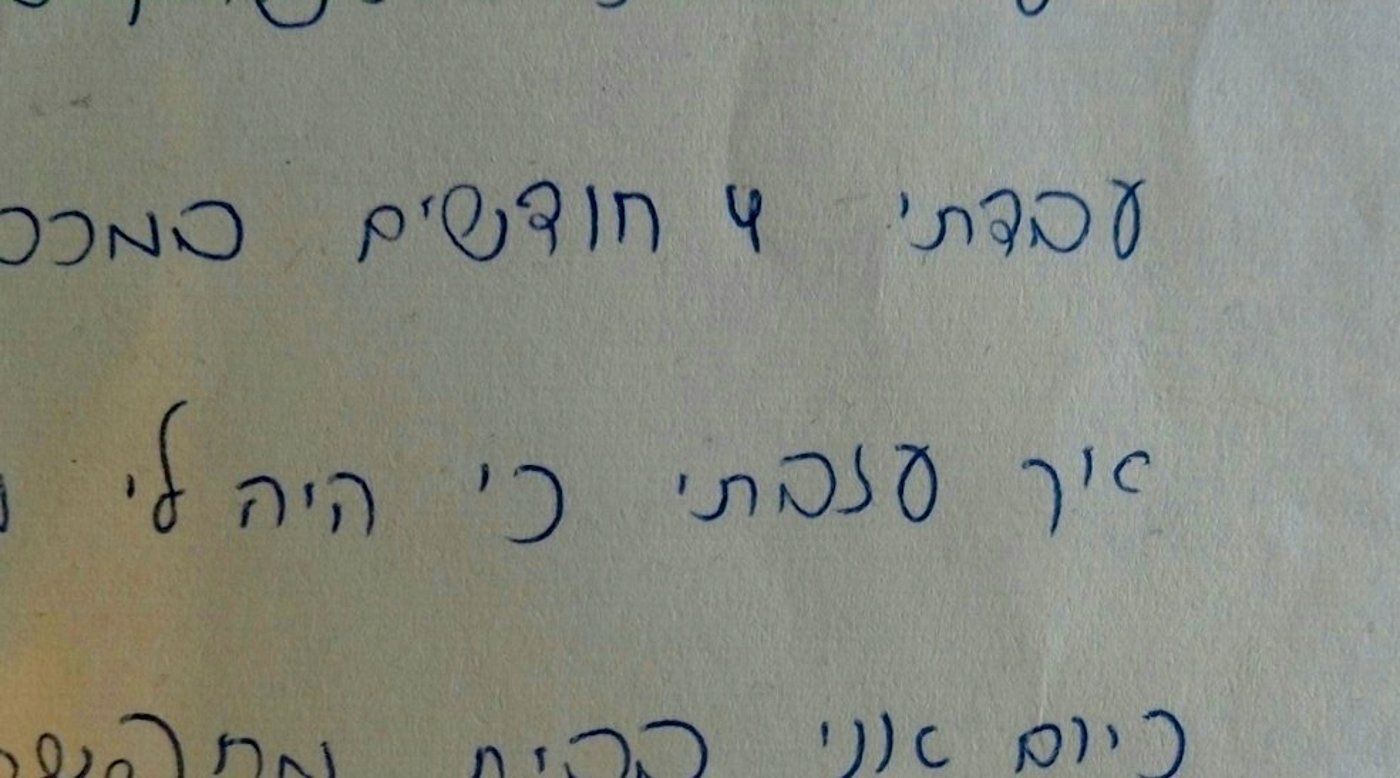 עבדתי 4 חודשים
איך עזבתי כי היה לי
כיום אני בבית